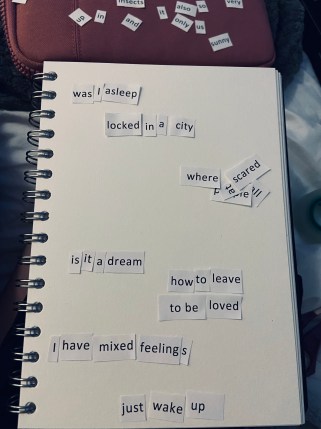 insects also so very
up in and it only us
sunny
was I asleep
locked in a city
where scared
is it a dream
how to leave
to be loved
I have mixed feelings
just wake up